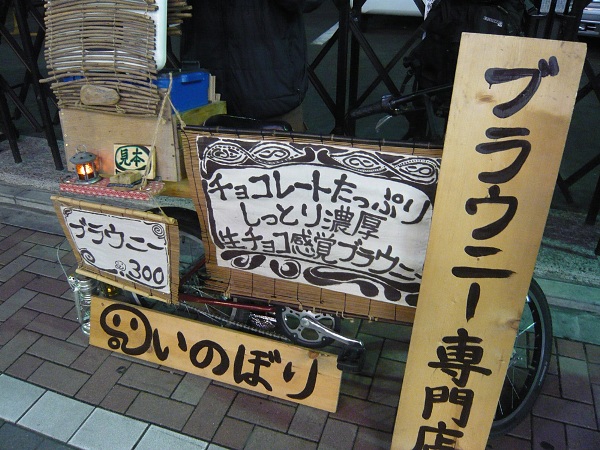 見本
チョコレートたっぷり
しっとり濃厚
生チョコ感覚ブラウニー
ブラウニー
300
いのぼり
ブラウニー専門店